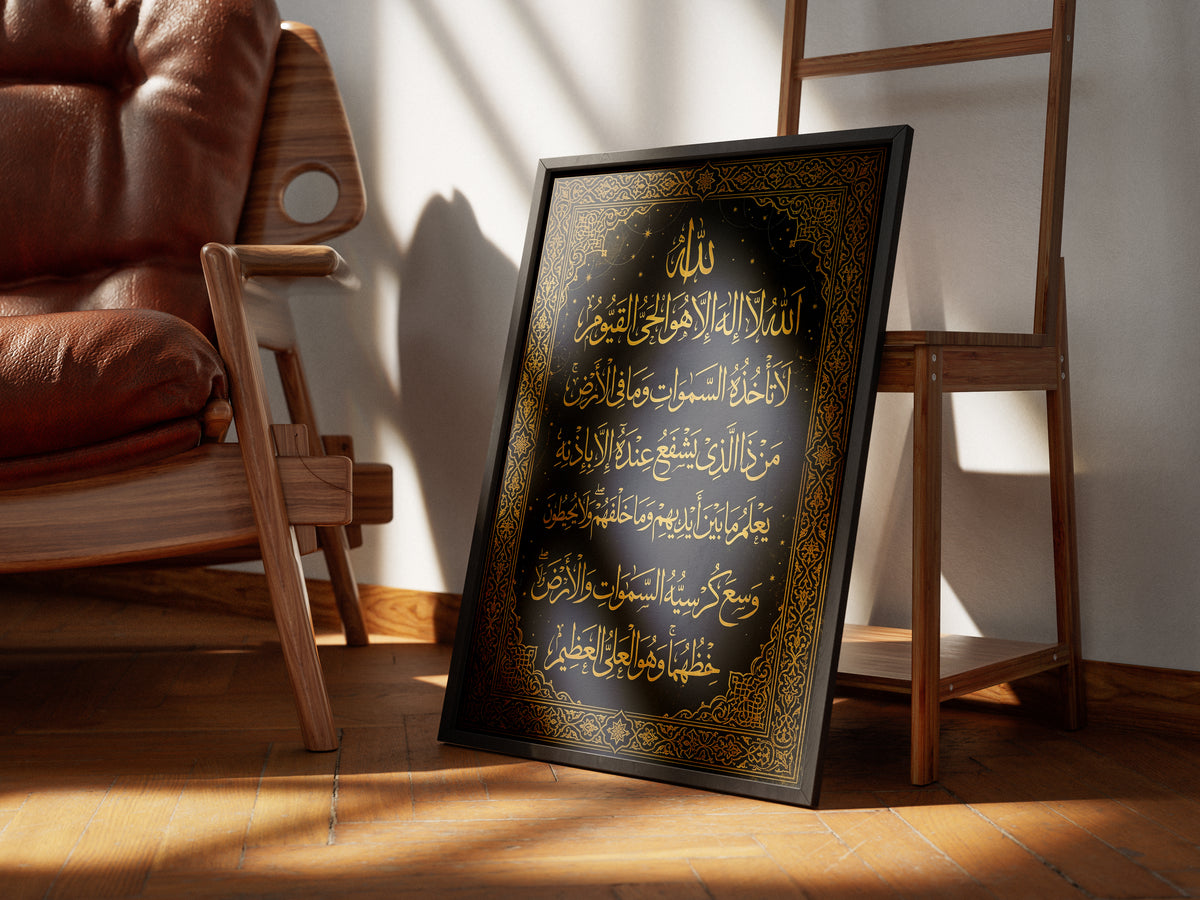 الله
اَللّٰهُ لَآ اِلٰهَ اِلَّا هُوَ الْحَىُّ الْقَيُّومُ
لَا تَأْخُذُهُ السَّمٰوَاتِ وَمَا فِى الْأَرْضِ
مَنْ ذَا الَّذِى يَشْفَعُ عِنْدَهُٓ اِلَّا بِاِذْنِهِ
يَعْلَمُ مَا بَيْنَ أَيْدِيهِمْ وَمَا خَلْفَهُمْ وَلَا يُحِيطُونَ
وَسِعَ كُرْسِيُّهُ السَّمٰوَاتِ وَالْأَرْضَ
حِفْظُهُمَا وَهُوَ الْعَلِىُّ الْعَظِيمُ